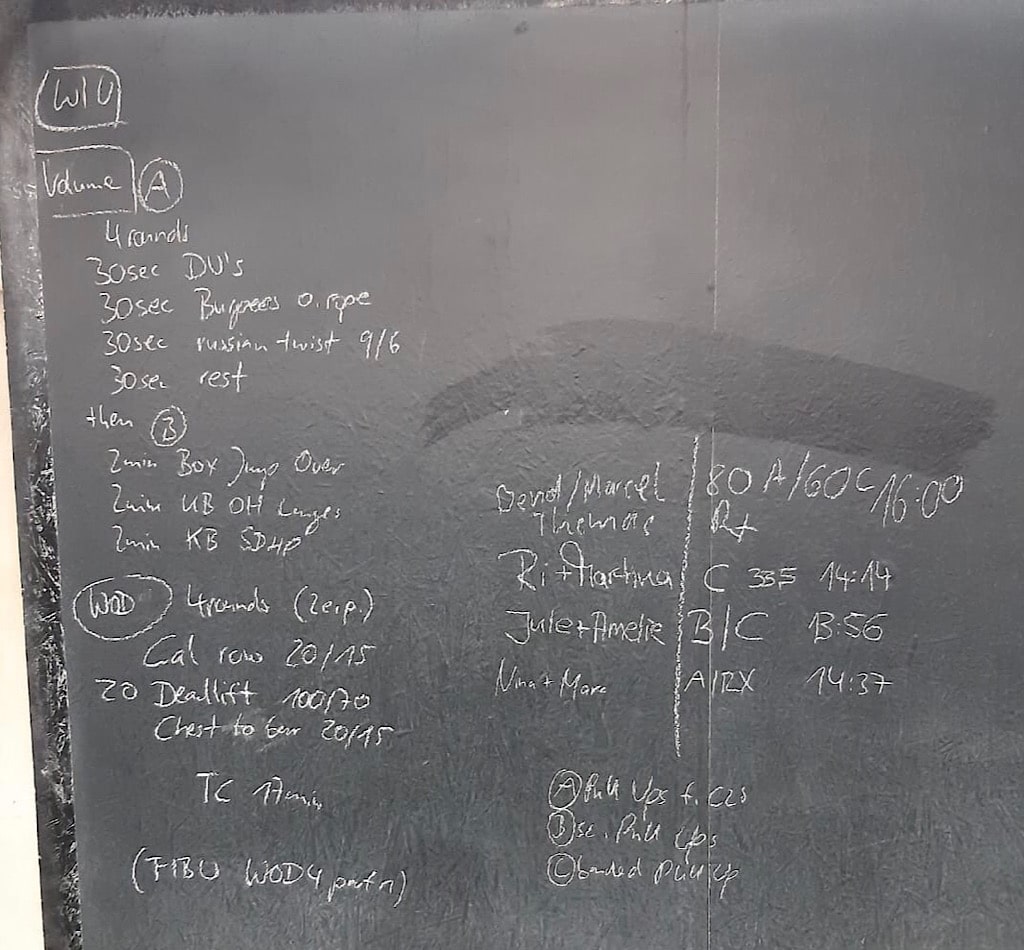 W/U
Volume A
4 rounds
30sec DU's
30sec Burpees o. rope
30sec russian twist 9/6
30sec rest
then B
2min Box Jump Over
2min KB OH Lunges
2min KB SDHP
WOD 4rounds (2e.p.)
Cal row 20/15
20 Deadlift 100/70
Chest to bar 20/15
TC 17min
(FIBO WOD4 part 1)
Bernd/Marcel 80A/60C/16:00
Thomas Rx
Ri+Martina C 14:14
Jule+Amelie B/C 13:56
Nina+Marc A/RX 14:37
A Pull Ups f. C2B
B sc. Pull Ups
C banded Pull Up